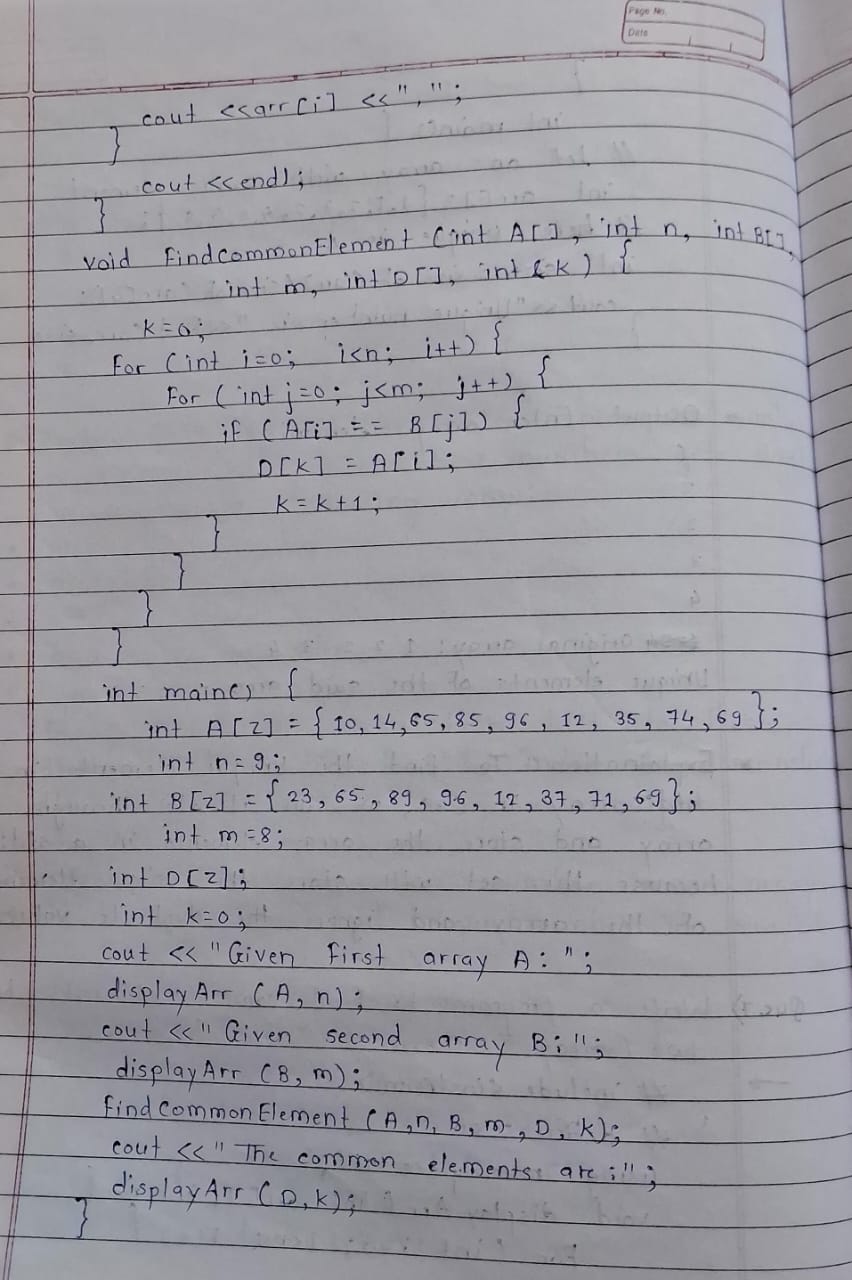 Page No.
Date
cout <<arr[i] <<",";
}
cout <<endl;
}
void findcommonElement (int A[], int n, int B[],
int m, int D[], int &k) {
k=0;
For (int i=0; i<n; i++) {
For (int j=0; j<m; j++) {
if (A[i] == B[j]) {
D[k] = A[i];
k=k+1;
}
}
}
}
int main() {
int A[z] = { 10, 14, 65, 85, 96, 12, 35, 74, 69 };
int n=9;
int B[z] = { 23, 65, 89, 96, 12, 37, 71, 69 };
int m=8;
int D[z];
int k=0;
cout << "Given first array A: ";
displayArr (A, n);
cout <<"Given second array B:";
displayArr (B, m);
findCommonElement (A, n, B, m, D, k);
cout <<"The common elements are:";
displayArr (D, k);
}